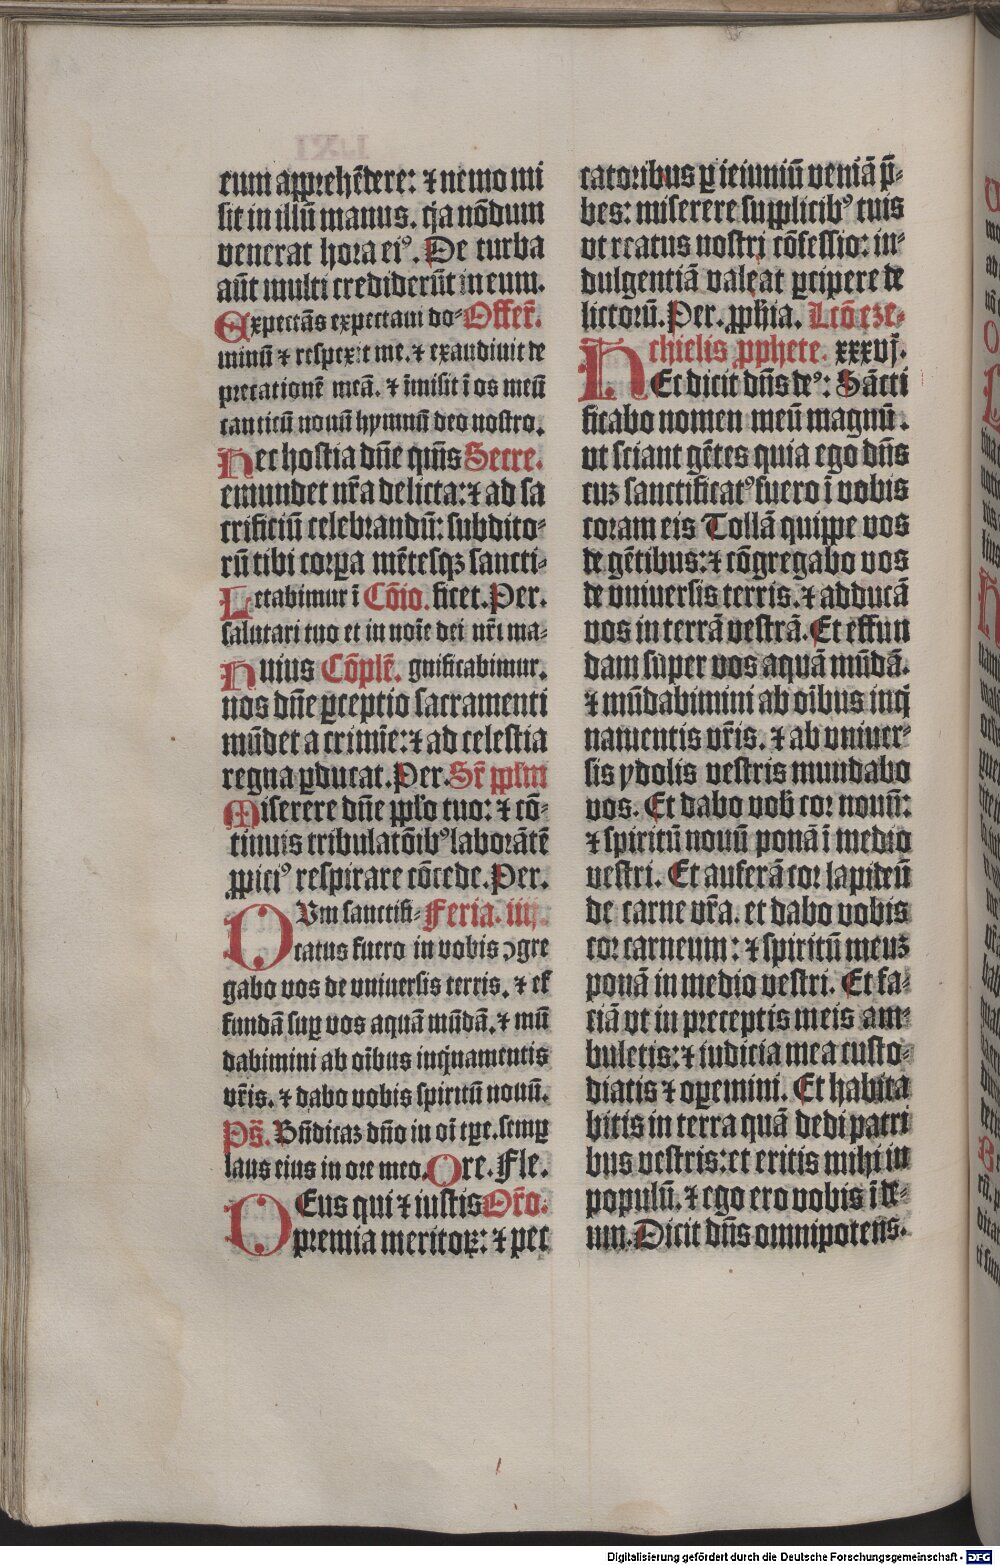 eum apprehēdere: ⁊ nemo mi
sit in illū manus. q̇a nōdum
venerat hora eiꝰ. De turba
aūt multi crediderūt in eum.
Expectās expectaui do- Offer̄.
minū ⁊ respexit me. ⁊ exaudiuit de
precationē meā. ⁊ īmisit ī os meū
canticū nouū hymnū deo nostro.
Hec hostia dn̄e qm̄s Secre.
emundet nr̄a delicta: ⁊ ad sa
crificiū celebrandū: subdito-
rū tibi corꝑa mētesqꝫ sancti-
Letabimur ī Cōio. ficet. Per.
salutari tuo et in noīe dei nr̄i ma-
Huius Cōplē. gnificabimur.
nos dn̄e ꝑceptio sacramenti
mūdet a crimīe: ⁊ ad celestia
regna ꝑducat. Per. Sr̄ pplm̄
Miserere dn̄e pplo tuo: ⁊ cō-
tinuis tribulatōibꝰ laborātē
ꝓpiciꝰ respirare cōcede. Per.
CVm sanctifi- Feria. iiij.
catus fuero in vobis ↄgre
gabo vos de vniuersis terris. ⁊ ef
fundā suꝑ vos aquā mūdā. ⁊ mū
dabimini ab oībus inq̇namentis
vr̄is. ⁊ dabo vobis spiritū nouū.
Ps̄. Bn̄dicaꝫ dn̄o in oī tꝑe. semꝑ
laus eius in ore meo. Ore. Fle.
DEus qui ⁊ iustis Oro.
premia meritoꝝ: ⁊ pec
catoribus ꝑ ieiuniū veniā p̄-
bes: miserere supplicibꝰ tuis
vt reatus nostri cōfessio: in-
dulgentiā valeat ꝑcipere de
lictorū. Per. ꝓphīa. Lcō eze-
chielis ꝓphete. xxxvj.
HEc dicit dn̄s deꝰ: Sācti
ficabo nomen meū magnū.
vt sciant gētes quia ego dn̄s
cuꝫ sanctificatꝰ fuero ī vobis
coram eis Tollā quippe vos
de gētibus: ⁊ cōgregabo vos
de vniuersis terris. ⁊ adducā
vos in terrā vestrā. Et effun
dam super vos aquā mūdā.
⁊ mūdabimini ab oībus inq̇
namentis vr̄is. ⁊ ab vniuer-
sis ydolis vestris mundabo
vos. Et dabo vob̄ cor nouū:
⁊ spiritū nouū ponā ī medio
vestri. Et auferā cor lapideū
de carne vr̄a. et dabo vobis
cor carneum: ⁊ spiritū meuꝫ
ponā in medio vestri. Et fa-
ciā vt in preceptis meis am-
buletis: ⁊ iudicia mea custo-
diatis ⁊ oꝑemini. Et habita
bitis in terra quā dedi patri
bus vestris: et eritis mihi in
populū. ⁊ ego ero vobis ī de-
um. Dicit dn̄s omnipotens.
Digitalisierung gefördert durch die Deutsche Forschungsgemeinschaft - DFG